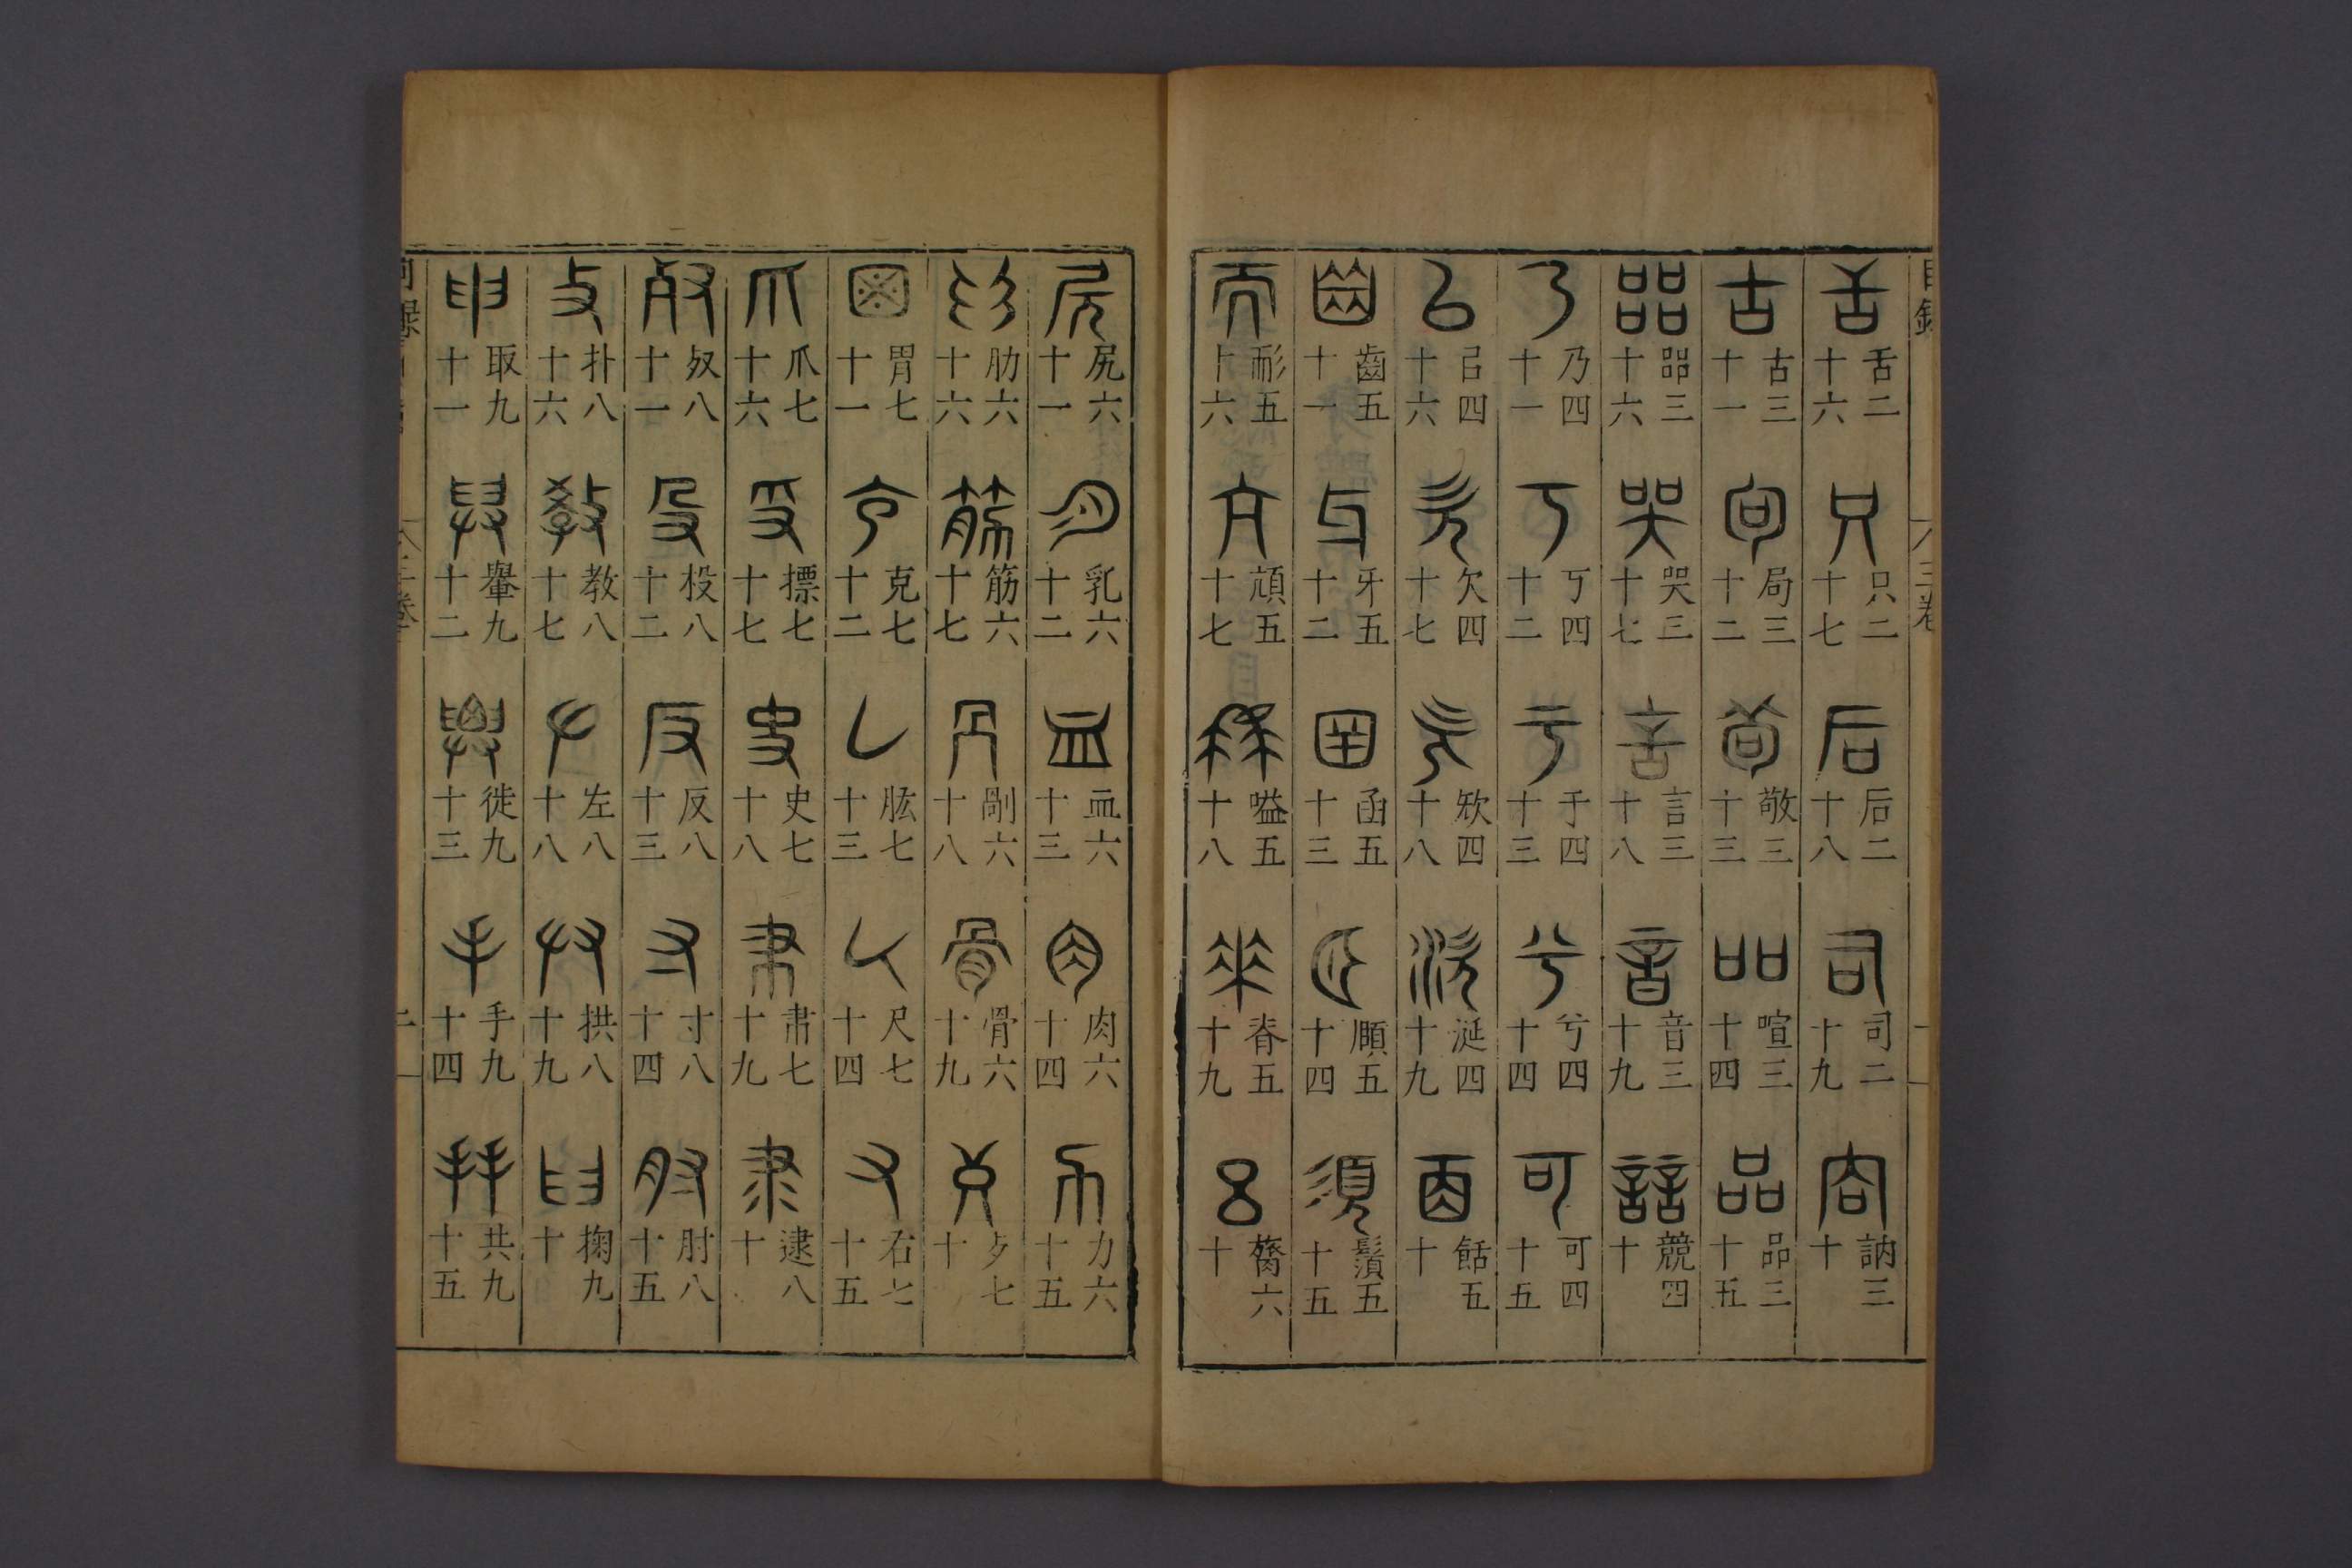 目錄 三卷
舌 舌二十六 只 只二十七 后 后二十八 司 司二十九 㕯 訥三十
古 古三十一 局三十二 敬三十三 吅 喧三十四 品 品三十五
㗊 㗊三十六 哭 哭三十七 言 言三十八 音 音三十九 誩 競四十
乃 乃四十一 丂 丂四十二 于 于四十三 兮 兮四十四 可 可四十五
㠯 㠯四十六 欠 欠四十七 欸四十八 㳄 涎四十九 䤈五十
齒 齒五十一 牙 牙五十二 函五十三 頤五十四 須 鬚五十五
而 耏五十六 亢 頏五十七 嗌五十八 脊五十九 呂 膂六十
尻 尻六十一 乳六十二 血 血六十三 肉 肉六十四 力 力六十五
肋六十六 筋 筋六十七 剛六十八 骨 骨六十九 歺七十
胃七十一 克 克七十二 肱七十三 尺七十四 又 右七十五
爪 爪七十六 𠬪 摽七十七 史 史七十八 肅七十九 隶 逮八十
㕡 㕡八十一 殳 投八十二 反 反八十三 寸八十四 肘八十五
攴 扑八十六 教 教八十七 𠂇 左八十八 廾 拱八十九 𦥑 掬九十
取九十一 舁 轝九十二 徙九十三 手 手九十四 共九十五